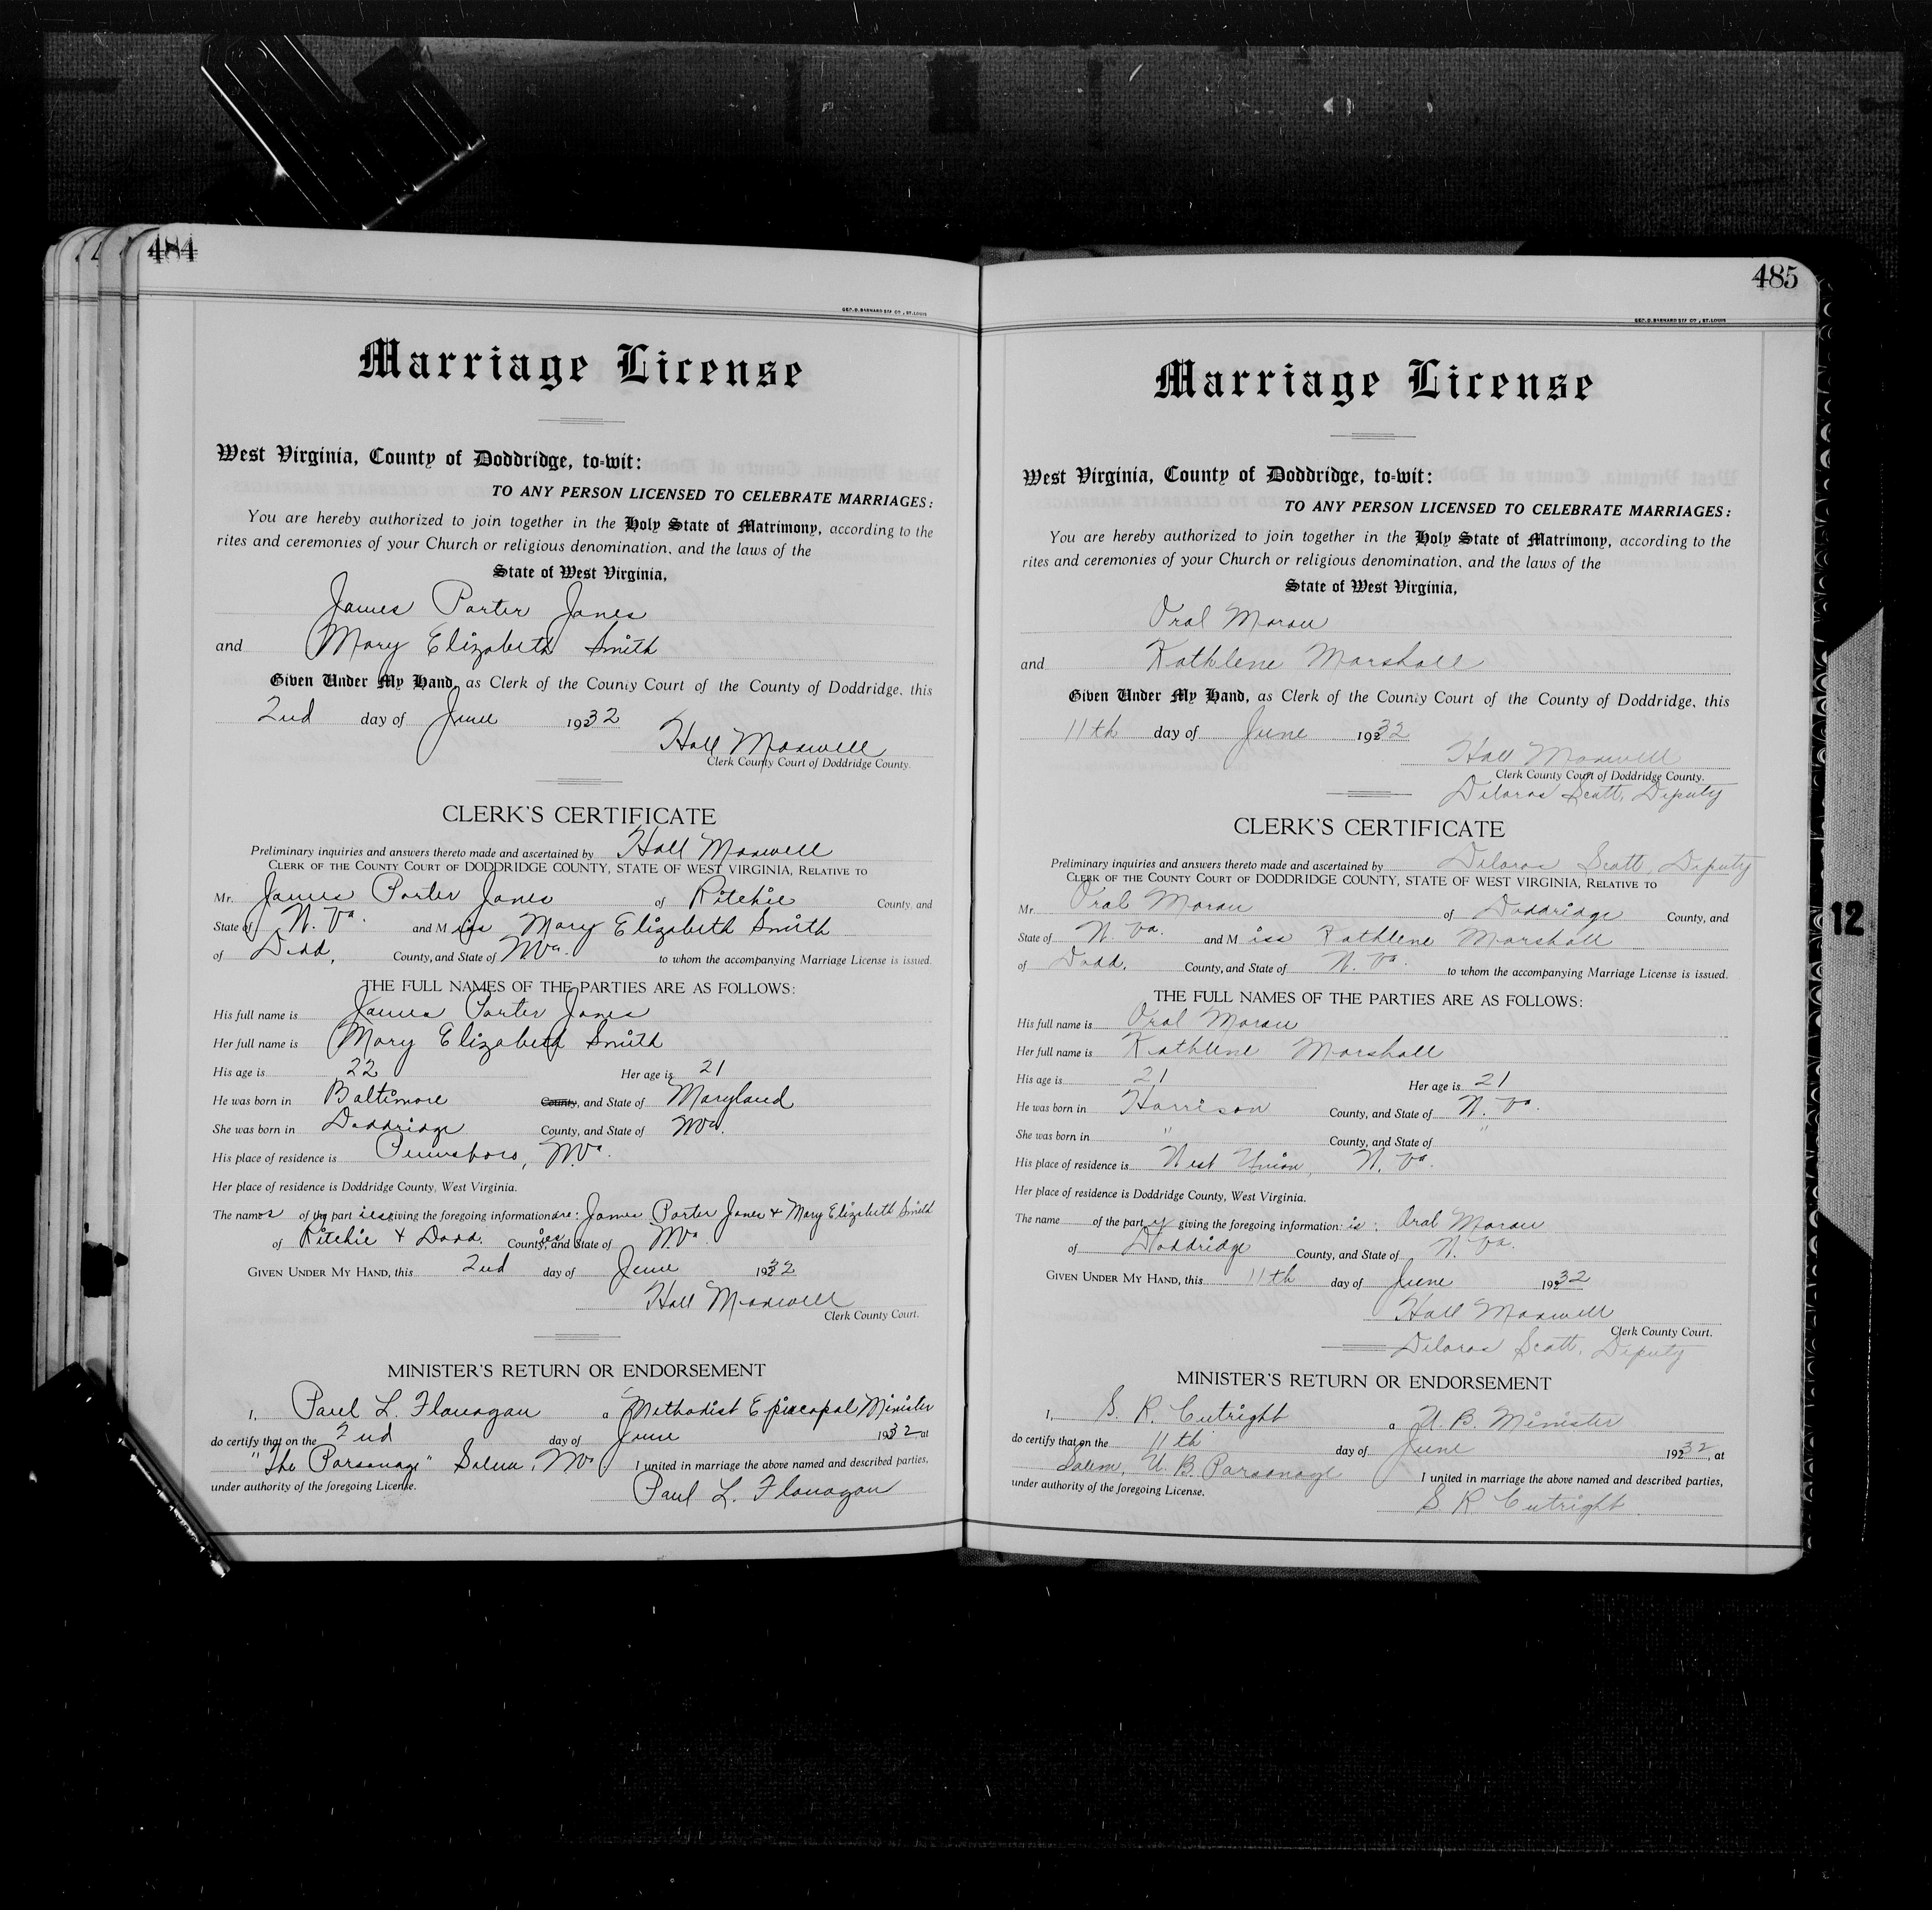 484
GEO. D. BARNARD STA. CO., ST. LOUIS
Marriage License
West Virginia, County of Doddridge, to-wit:
TO ANY PERSON LICENSED TO CELEBRATE MARRIAGES:
You are hereby authorized to join together in the Holy State of Matrimony, according to the
rites and ceremonies of your Church or religious denomination, and the laws of the
State of West Virginia,
James Porter Jones
and Mary Elizabeth Smith
Given Under My Hand, as Clerk of the County Court of the County of Doddridge, this
2nd day of June 1932
Hall Maxwell
Clerk County Court of Doddridge County.
CLERK'S CERTIFICATE
Preliminary inquiries and answers thereto made and ascertained by Hall Maxwell
CLERK OF THE COUNTY COURT OF DODDRIDGE COUNTY, STATE OF WEST VIRGINIA, RELATIVE TO
Mr. James Porter Jones of Ritchie County, and
State of W. Va. and Miss Mary Elizabeth Smith
of Dodd, County, and State of W.Va. to whom the accompanying Marriage License is issued.
THE FULL NAMES OF THE PARTIES ARE AS FOLLOWS:
His full name is James Porter Jones
Her full name is Mary Elizabeth Smith
His age is 22 Her age is 21
He was born in Baltimore County, and State of Maryland
She was born in Doddridge County, and State of W.Va.
His place of residence is Pennsboro, W.Va.
Her place of residence is Doddridge County, West Virginia.
The names of the part ies giving the foregoing information are: James Porter Jones & Mary Elizabeth Smith
of Ritchie & Dodd. Counties, and State of W.Va.
GIVEN UNDER MY HAND, this 2nd day of June 1932
Hall Maxwell
Clerk County Court.
MINISTER'S RETURN OR ENDORSEMENT
I, Paul L. Flanagan a Methodist Episcopal Minister
do certify that on the 2nd day of June 1932, at
"The Parsonage" Salem, W.Va I united in marriage the above named and described parties,
under authority of the foregoing License.
Paul L. Flanagan
485
GEO. D. BARNARD STA. CO., ST. LOUIS
Marriage License
West Virginia, County of Doddridge, to-wit:
TO ANY PERSON LICENSED TO CELEBRATE MARRIAGES:
You are hereby authorized to join together in the Holy State of Matrimony, according to the
rites and ceremonies of your Church or religious denomination, and the laws of the
State of West Virginia,
Oral Moran
and Kathlene Marshall
Given Under My Hand, as Clerk of the County Court of the County of Doddridge, this
11th day of June 1932
Hall Maxwell
Clerk County Court of Doddridge County.
Deloras Scott, Deputy
CLERK'S CERTIFICATE
Preliminary inquiries and answers thereto made and ascertained by Deloras Scott, Deputy
CLERK OF THE COUNTY COURT OF DODDRIDGE COUNTY, STATE OF WEST VIRGINIA, RELATIVE TO
Mr. Oral Moran of Doddridge County, and
State of W. Va. and Miss Kathlene Marshall
of Dodd. County, and State of W. Va. to whom the accompanying Marriage License is issued.
THE FULL NAMES OF THE PARTIES ARE AS FOLLOWS:
His full name is Oral Moran
Her full name is Kathlene Marshall
His age is 21 Her age is 21
He was born in Harrison County, and State of W. Va.
She was born in " County, and State of "
His place of residence is West Union, W. Va.
Her place of residence is Doddridge County, West Virginia.
The name of the party giving the foregoing information: is: Oral Moran
of Doddridge County, and State of W. Va.
GIVEN UNDER MY HAND, this 11th day of June 1932
Hall Maxwell
Clerk County Court.
Deloras Scott, Deputy
MINISTER'S RETURN OR ENDORSEMENT
I, S. R. Cutright a U. B. Minister
do certify that on the 11th day of June 1932, at
Salem, U. B. Parsonage I united in marriage the above named and described parties,
under authority of the foregoing License.
S. R. Cutright
12